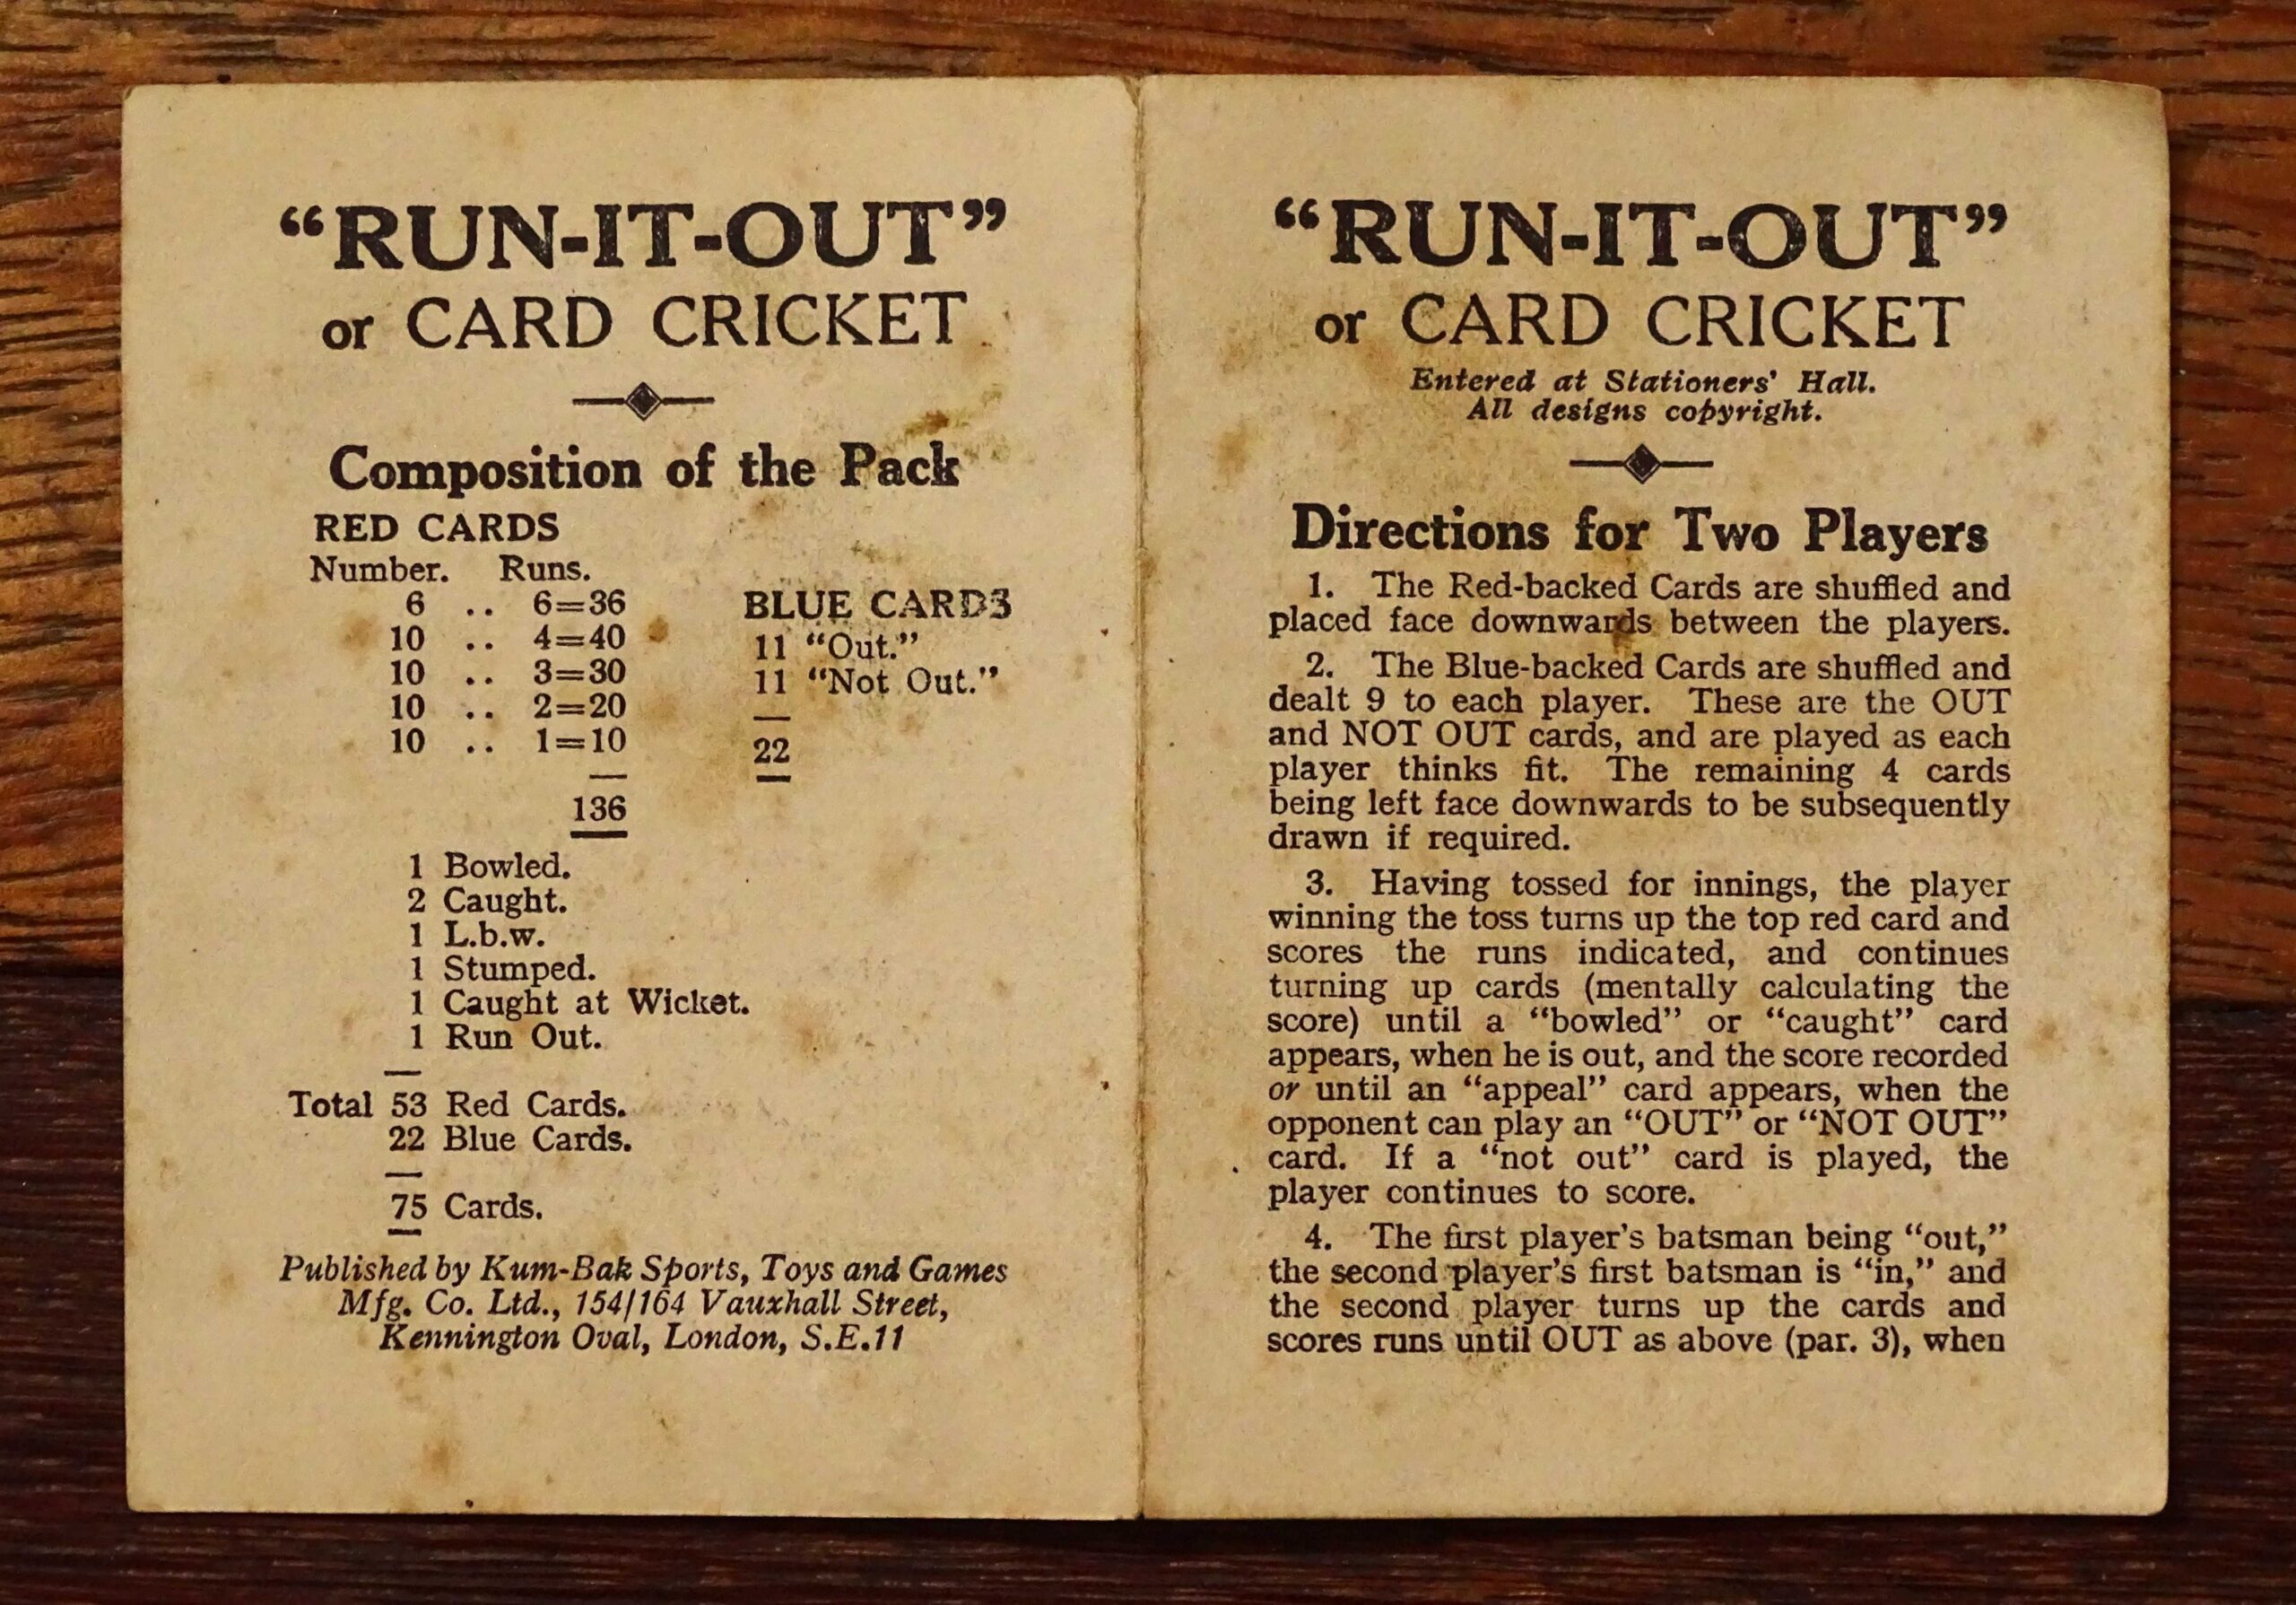 “RUN-IT-OUT”
or CARD CRICKET
Composition of the Pack
RED CARDS
Number. Runs.
6 .. 6=36
10 .. 4=40
10 .. 3=30
10 .. 2=20
10 .. 1=10
136
BLUE CARDS
11 “Out.”
11 “Not Out.”
22
1 Bowled.
2 Caught.
1 L.b.w.
1 Stumped.
1 Caught at Wicket.
1 Run Out.
Total 53 Red Cards.
22 Blue Cards.
75 Cards.
Published by Kum-Bak Sports, Toys and Games
Mfg. Co. Ltd., 154/164 Vauxhall Street,
Kennington Oval, London, S.E.11
“RUN-IT-OUT”
or CARD CRICKET
Entered at Stationers' Hall.
All designs copyright.
Directions for Two Players
1. The Red-backed Cards are shuffled and
placed face downwards between the players.
2. The Blue-backed Cards are shuffled and
dealt 9 to each player. These are the OUT
and NOT OUT cards, and are played as each
player thinks fit. The remaining 4 cards
being left face downwards to be subsequently
drawn if required.
3. Having tossed for innings, the player
winning the toss turns up the top red card and
scores the runs indicated, and continues
turning up cards (mentally calculating the
score) until a “bowled” or “caught” card
appears, when he is out, and the score recorded
or until an “appeal” card appears, when the
opponent can play an “OUT” or “NOT OUT”
card. If a “not out” card is played, the
player continues to score.
4. The first player's batsman being “out,”
the second player's first batsman is “in,” and
the second player turns up the cards and
scores runs until OUT as above (par. 3), when